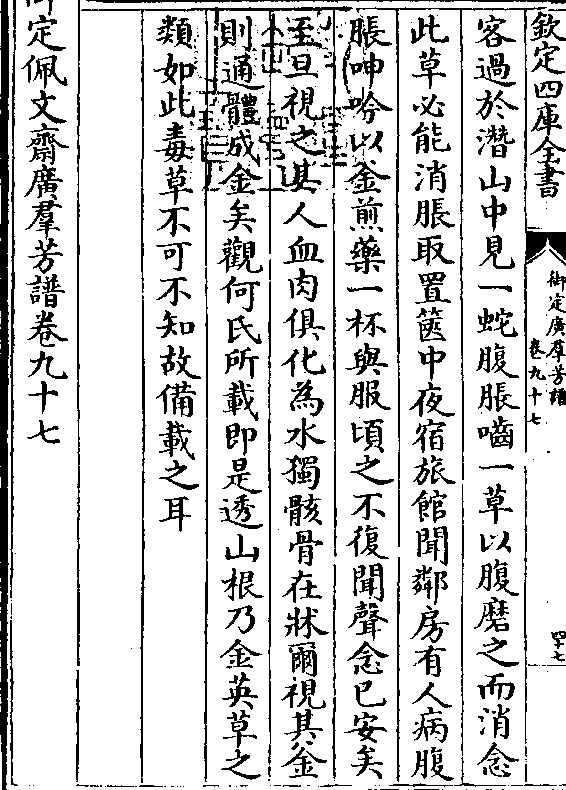 欽定四庫全書
御定廣羣芳譜
卷九十七
四十七
客過於潛山中見一蛇腹脹嚙一草以腹磨之而消念
此草必能消脹取置篋中夜宿旅館聞鄰房有人病腹
脹呻吟以釜煎藥一杯與服頃之不復聞聲念已安矣
至旦視之其人血肉俱化為水獨骸骨在牀爾視其釜
則通體成金矣觀何氏所載即是透山根乃金英草之
類如此毒草不可不知故備載之耳
御定佩文齋廣羣芳譜卷九十七